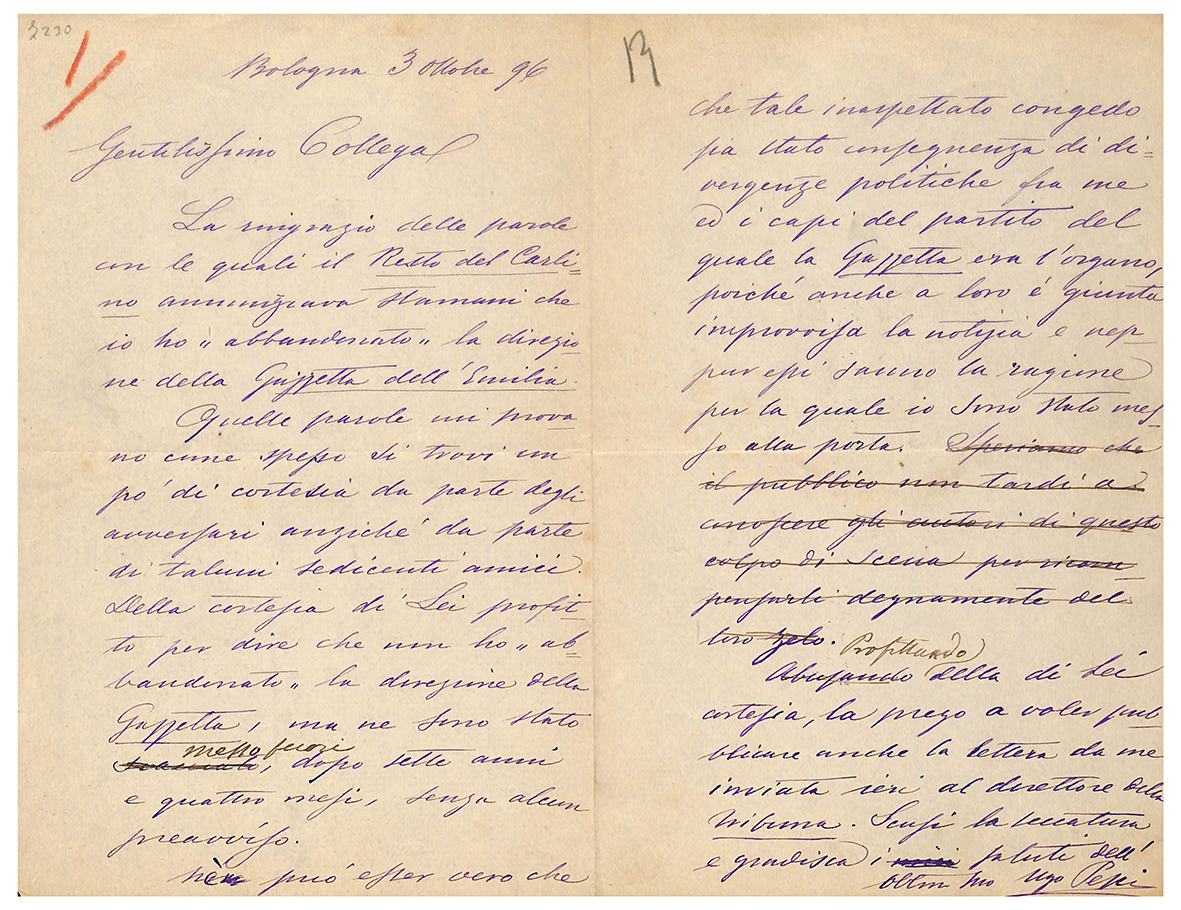 2230
Bologna 3 ottobre 96
Gentilissimo Collega
La ringrazio delle parole
con le quali il Resto del Carli=
no annunziava stamani che
io ho „abbandonato„ la direzio
ne della Gazzetta dell'Emilia.
Quelle parole mi prova
no come spesso si trovi un
pò di cortesia da parte degli
avversari anziché da parte
di taluni sedicenti amici.
Della cortesia di Lei profit=
to per dire che non ho „ab=
bandonato„ la direzione della
Gazzetta, ma ne sono stato
messo fuori
scacciato, dopo sette anni
e quattro mesi, senza alcun
preavviso.
Nè può esser vero che
che tale inaspettato congedo
sia stato conseguenza di di=
vergenze politiche fra me
ed i capi del partito del
quale la Gazzetta era l'organo,
poiché anche a loro é giunta
improvvisa la notizia e nep=
pur essi sanno la ragione
per la quale io sono stato mes
so alla porta. Speriamo che
il pubblico non tardi a
conoscere gli autori di questo
colpo di scena per ricom=
pensarli degnamente del
loro zelo.
Profittando
Abusando della di Lei
cortesia, la prego a voler pub
blicare anche la lettera da me
inviata ieri al direttore della
Tribuna. Scusi la seccatura
e gradisca i miei saluti dell'
obbmo suo Ugo Pesci